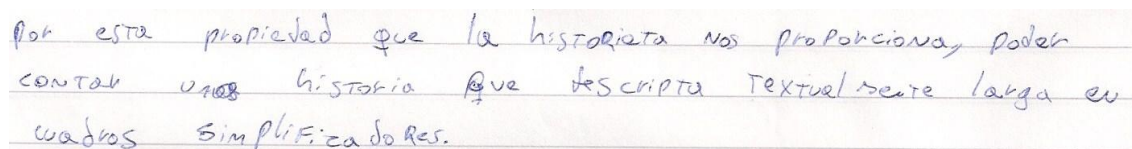 por esta propiedad que la historieta nos proporciona, poder
contar una historia que descripta textualmente larga en
cuadros simplificadores.